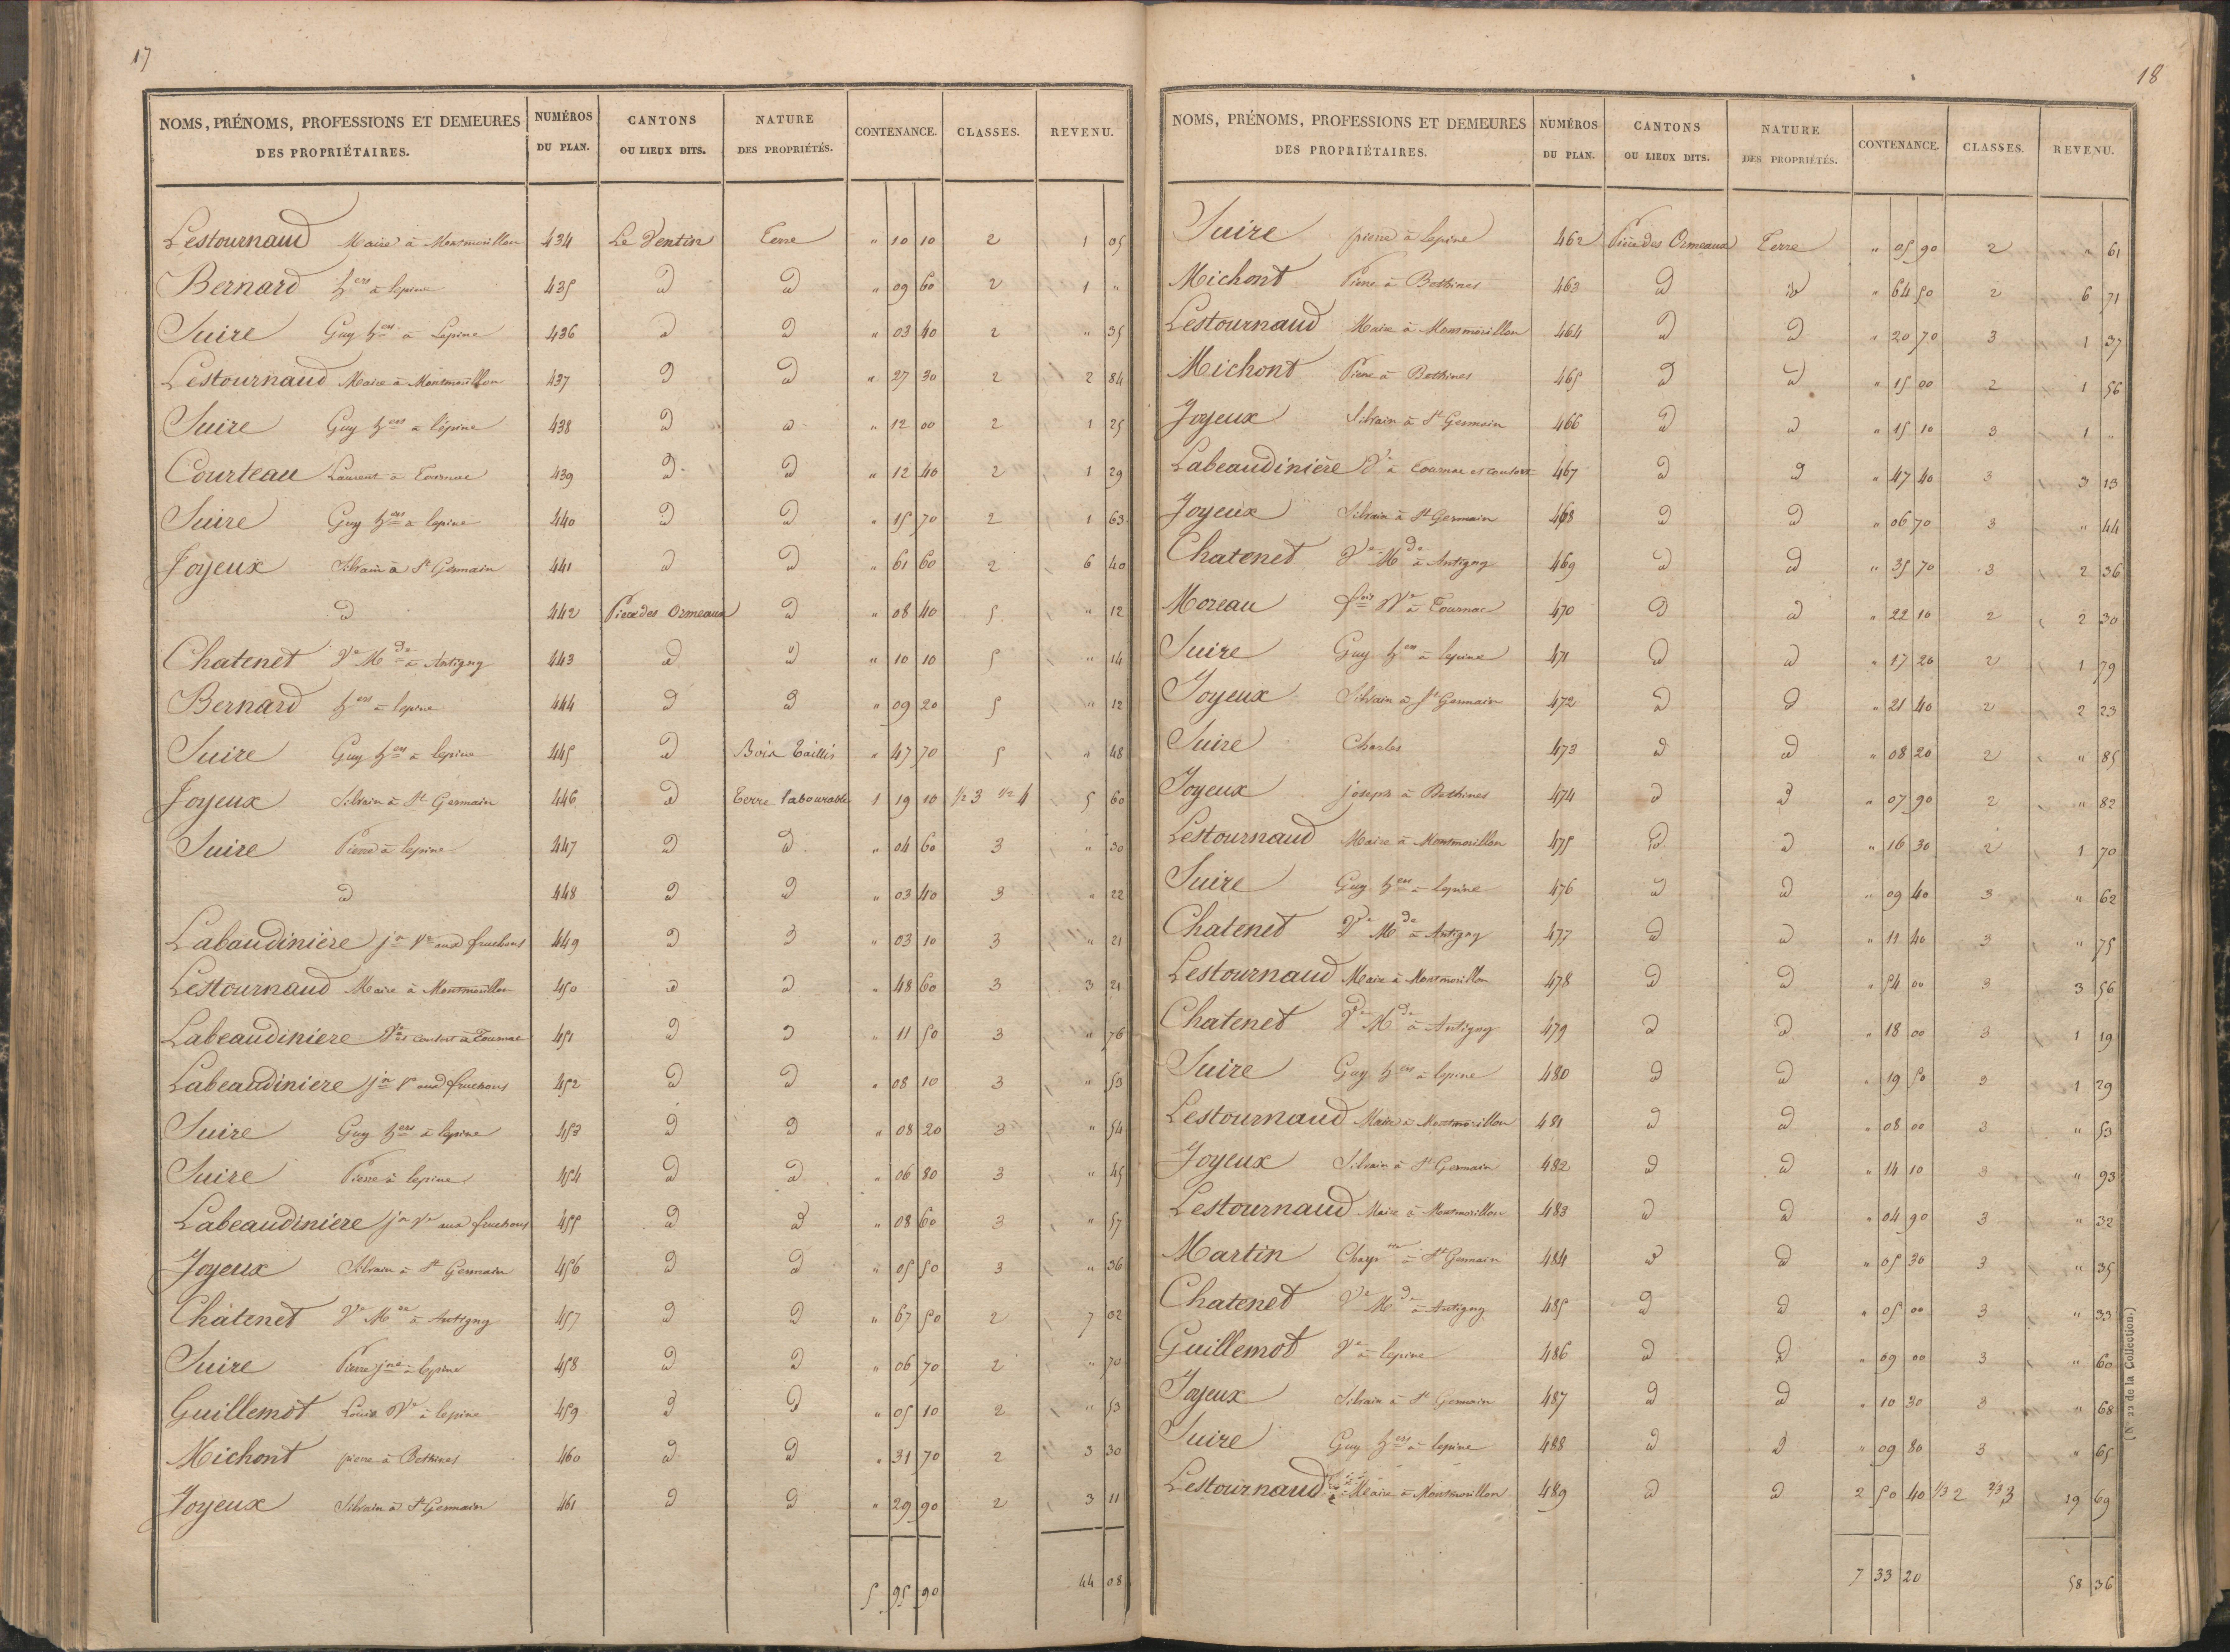 17
NOMS, PRÉNOMS, PROFESSIONS ET DEMEURES DES PROPRIÉTAIRES. NUMÉROS DU PLAN. CANTONS OU LIEUX DITS. NATURE DES PROPRIÉTÉS. CONTENANCE. CLASSES. REVENU.
Lestournaud Maire à Montmorillon 434 Le Ventin Terre " 10 10 2 1 05
Bernard hers à lepine 435 d d " 09 60 2 1 "
Suire Guy hers à Lepine 436 d d " 03 40 2 " 35
Lestournaud Maire à Montmorillon 437 d d " 27 30 2 2 84
Suire Guy hers à l'épine 438 d d " 12 00 2 1 25
Courteau Laurent à Tournac 439 d d " 12 40 2 1 29
Suire Guy hers à lepine 440 d d " 15 70 2 1 63
Joyeux Silvain à St Germain 441 d d " 61 60 2 6 40
d 442 Pièce des Ormeaux d " 08 40 5 " 12
Chatenet Ve Mde à Antigny 443 d d " 10 10 5 " 14
Bernard hers à lepine 444 d d " 09 20 5 " 12
Suire Guy hers à lepine 445 d Bois Taillis " 47 70 5 " 48
Joyeux Silvain à St Germain 446 d Terre labourable 1 19 10 1/2 3 1/2 4 5 60
Suire Pierre à lepine 447 d d " 04 60 3 " 30
d 448 d d " 03 40 3 " 22
Labaudinière jn Ve aux fruchons 449 d d " 03 10 3 " 21
Lestournaud Maire à Montmorillon 450 d d " 48 60 3 3 21
Labeaudiniere Ve et consort à Tournac 451 d d " 11 50 3 " 76
Labeaudiniere jn Ve aux fruchons 452 d d " 08 10 3 " 53
Suire Guy hers à lepine 453 d d " 08 20 3 " 54
Suire Pierre à lepine 454 d d " 06 80 3 " 45
Labeaudiniere jn Ve aux fruchons 455 d d " 08 60 3 " 57
Joyeux Silvain à St Germain 456 d d " 05 50 3 " 36
Chatenet Ve Mde à Antigny 457 d d " 67 50 2 7 02
Suire Pierre jne à lepine 458 d d " 06 70 2 " 70
Guillemot Louis Ve à lepine 459 d d " 05 10 2 " 53
Michont pierre à Bethines 460 d d " 31 70 2 3 30
Joyeux Silvain à St Germain 461 d d " 29 90 2 3 11
5 95 90 44 08
18
NOMS, PRÉNOMS, PROFESSIONS ET DEMEURES DES PROPRIÉTAIRES. NUMÉROS DU PLAN. CANTONS OU LIEUX DITS. NATURE DES PROPRIÉTÉS. CONTENANCE. CLASSES. REVENU.
Suire pierre à lepine 462 Pièce des Ormeaux Terre " 05 90 2 " 61
Michont Pierre à Bethines 463 d d " 64 50 2 6 71
Lestournaud Maire à Montmorillon 464 d d " 20 70 3 1 37
Michont Pierre à Bethines 465 d d " 15 00 2 1 56
Joyeux Silvain à St Germain 466 d d " 15 10 3 1 "
Labeaudinière Ve à Tournac et consort 467 d d " 47 40 3 3 13
Joyeux Silvain à St Germain 468 d d " 06 70 3 " 44
Chatenet Ve Mde à Antigny 469 d d " 35 70 3 2 36
Moreau fois Ve à Tournac 470 d d " 22 10 2 2 30
Suire Guy hers à lepine 471 d d " 17 20 2 1 79
Joyeux Silvain à St Germain 472 d d " 21 40 2 2 23
Suire Charles 473 d d " 08 20 2 " 85
Joyeux joseph à Bethines 474 d d " 07 90 2 " 82
Lestournaud Maire à Montmorillon 475 d d " 16 30 2 1 70
Suire Guy hers à lepine 476 d d " 09 40 3 " 62
Chatenet Ve Mde à Antigny 477 d d " 11 40 3 " 75
Lestournaud Maire à Montmorillon 478 d d " 54 00 3 3 56
Chatenet Ve Mde à Antigny 479 d d " 18 00 3 1 19
Suire Guy hers à lepine 480 d d " 19 50 3 1 29
Lestournaud Maire à Montmorillon 481 d d " 08 00 3 " 53
Joyeux Silvain à St Germain 482 d d " 14 10 3 " 93
Lestournaud Maire à Montmorillon 483 d d " 04 90 3 " 32
Martin à St Germain 484 d d " 05 30 3 " 35
Chatenet Ve Mde à Antigny 485 d d " 05 00 3 " 33
Guillemot Ve à lepine 486 d d " 09 00 3 " 60
Joyeux Silvain à St Germain 487 d d " 10 30 3 " 68
Suire Guy hers à lepine 488 d d " 09 80 3 " 65
Lestournaud Maire à Montmorillon 489 d d 2 50 40 1/3 2 2/3 3 19 69
7 33 20 58 36
(N° 22 de la Collection.)